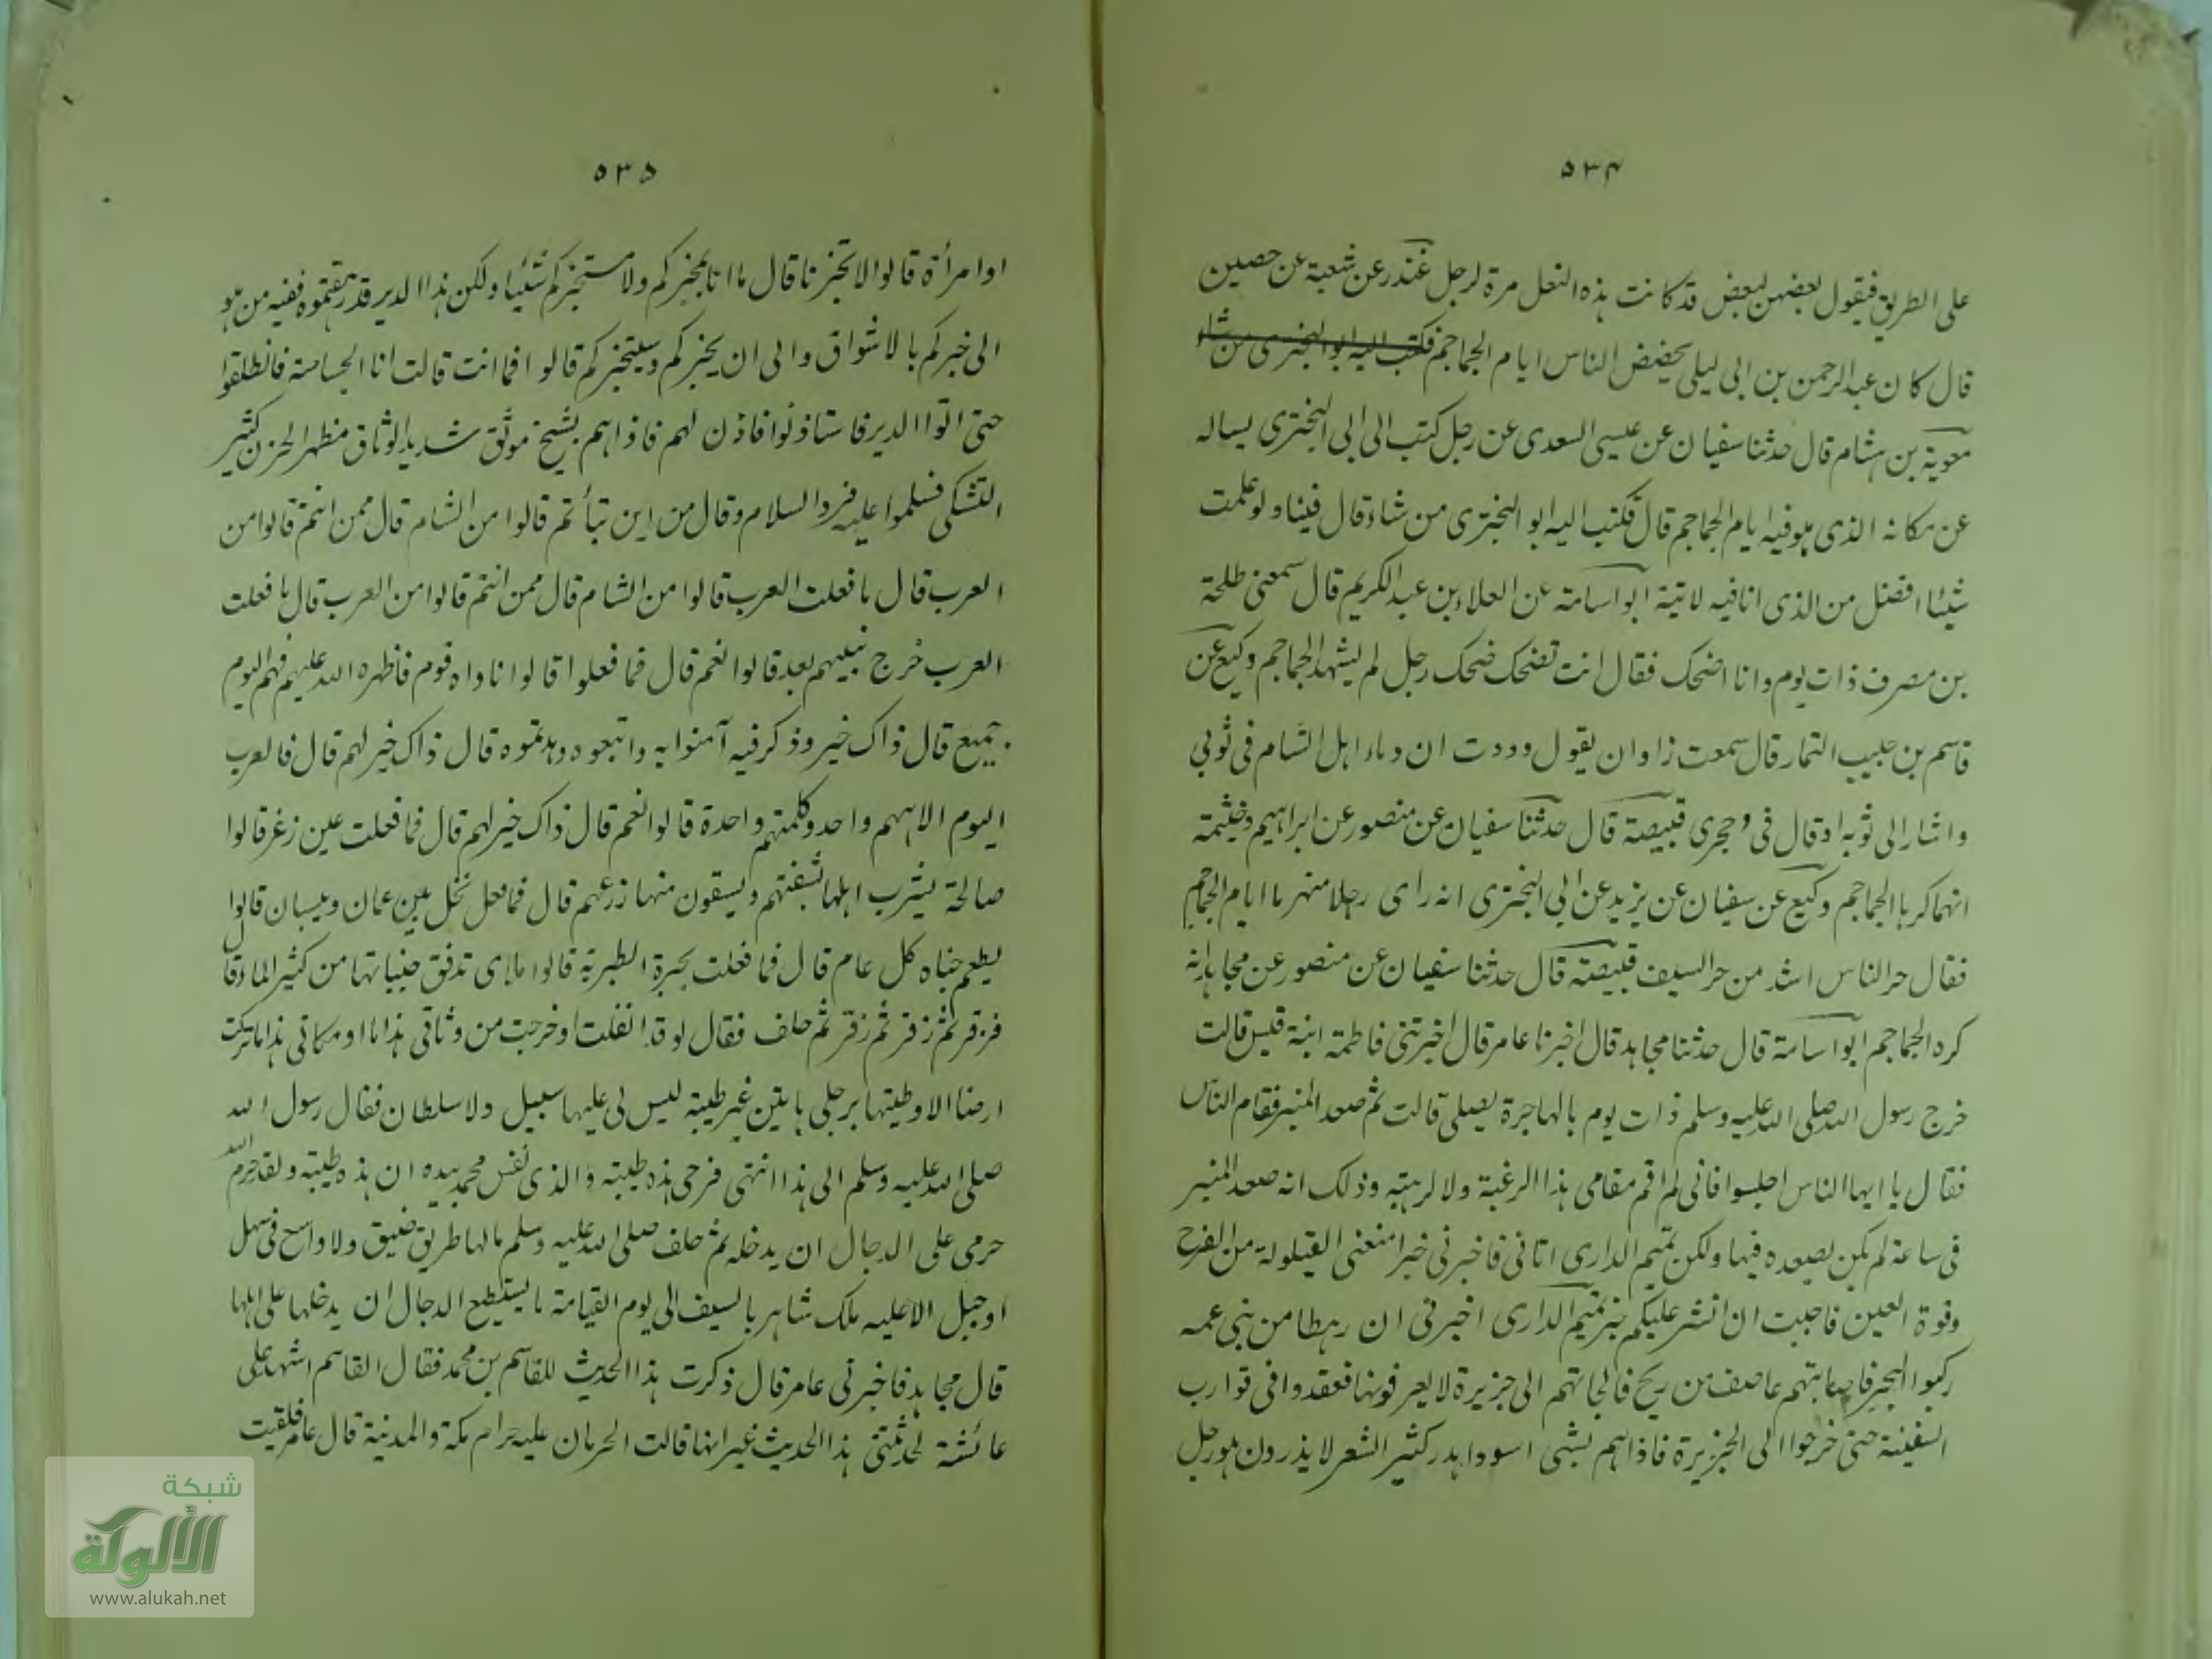 ٥٣٤
على الطريق فيقول بعضهن لبعض قد كانت هذه النعل مرة لرجل غندر عن شعبة عن حصين
قال كان عبد الرحمن بن ابى ليلى يحضض الناس ايام الجماجم فكتب اليه ابو البخترى من شاء
معوية بن هشام قال حدثنا سفيان عن عيسى السعدى عن رجل كتب الى ابى البخترى يساله
عن مكانه الذى هو فيه ايام الجماجم قال فكتب اليه ابو البخترى من شاء قال فينا ولو علمت
شيئا افضل من الذى انا فيه لاتيته ابو اسامة عن العلاء بن عبد الكريم قال سمعنى طلحة
بن مصرف ذات يوم وانا اضحك فقال انت تضحك ضحك رجل لم يشهد الجماجم وكيع عن
قاسم بن حبيب التمار قال سمعت زاوان يقول وددت ان دماء اهل الشام فى ثوبى
واشار الى ثوبه او قال فى حجرى قبيصة قال حدثنا سفيان عن منصور عن ابراهيم وخيثمة
انهما كرها الجماجم وكيع عن سفيان عن يزيد عن ابى البخترى انه راى رجلا منهزما ايام الجماجم
فقال حر الناس اشد من حر السيف قبيصة قال حدثنا سفيان عن منصور عن مجاهد انه
كره الجماجم ابو اسامة قال حدثنا مجاهد قال اخبرنا عامر قال اخبرتنى فاطمة ابنة قيس قالت
خرج رسول الله صلى الله عليه وسلم ذات يوم بالهاجرة يصلى قالت ثم صعد المنبر فقام الناس
فقال يا ايها الناس اجلسوا فانى لم اقم مقامى هذا الرغبة ولا لرهبة وذلك انه صعد المنبر
فى ساعة لم يكن يصعده فيها ولكن تميم الدارى اتانى فاخبرنى خبرا منعنى القيلولة من الفرح
وقوة العين فاحببت ان انشر عليكم خبر تميم الدارى اخبرنى ان رهطا من بنى عمه
ركبوا البحر فاصابتهم عاصف من ريح فالجاتهم الى جزيرة لا يعرفونها فقعدوا فى قوارب
السفينة حتى خرجوا الى الجزيرة فاذا هم بشى اسود اهدر كثير الشعر لا يدرون هو رجل
٥٣٥
او امرأة قالوا الا تخبرنا قال ما انا بمخبركم ولا مستخبركم شيئا ولكن هذا الدير قد رهقتموه ففيه من هو
الى خبركم بالاشواق والى ان يخبركم ويستخبركم قالوا فما انت قالت انا الجساسة فانطلقوا
حتى اتوا الدير فاستاذنوا فاذن لهم فاذا هم بشيخ موثق شديد الوثاق مظهر الحزن كثير
التشكى فسلموا عليه فرد السلام وقال من اين نبأتم قالوا من الشام قال ممن انتم قالوا من
العرب قال ما فعلت العرب قالوا من الشام قال ممن انتم قالوا من العرب قال ما فعلت
العرب خرج نبيهم بعد قالوا نعم قال فما فعلوا قالوا ناواه قوم فاظهره الله عليهم فهم اليوم
جميع قال ذاك خير وذكر فيه آمنوا به واتبعوه وصدقوه قال ذاك خير لهم قال فالعرب
اليوم الاههم واحد وكلمتهم واحدة قالوا نعم قال ذاك خير لهم قال فما فعلت عين زغر قالوا
صالحة يشرب اهلها بشفتهم ويسقون منها زرعهم قال فما فعل نخل بين عمان وبيسان قالوا
يطعم جناه كل عام قال فما فعلت بحيرة الطبرية قالوا ملاى تدفق جنباتها من كثير الماء قال
فزفر ثم زفر ثم زفر ثم حلف فقال لو قد انفلت او خرجت من وثاقى هذا او مكانى هذا ما تركت
ارضا الا وطيتها برجلى هاتين غير طيبة ليس لى عليها سبيل ولا سلطان فقال رسول الله
صلى الله عليه وسلم الى هذا انتهى فرحى هذه طيبة والذى نفس محمد بيده ان هذه طيبة ولقد حرم الله
حرمى على الدجال ان يدخله ثم حلف صلى الله عليه وسلم ما لها طريق ضيق ولا واسع فى سهل
او جبل الا عليه ملك شاهر بالسيف الى يوم القيامة ما يستطيع الدجال ان يدخلها على اهلها
قال مجاهد فاخبرنى عامر قال ذكرت هذا الحديث للقاسم بن محمد فقال القاسم اشهد على
عائشة لحدثتنى هذا الحديث غير انها قالت الحرمان عليه حرام مكة والمدينة قال عامر فلقيت
شبكة
الألوكة
www.alukah.net